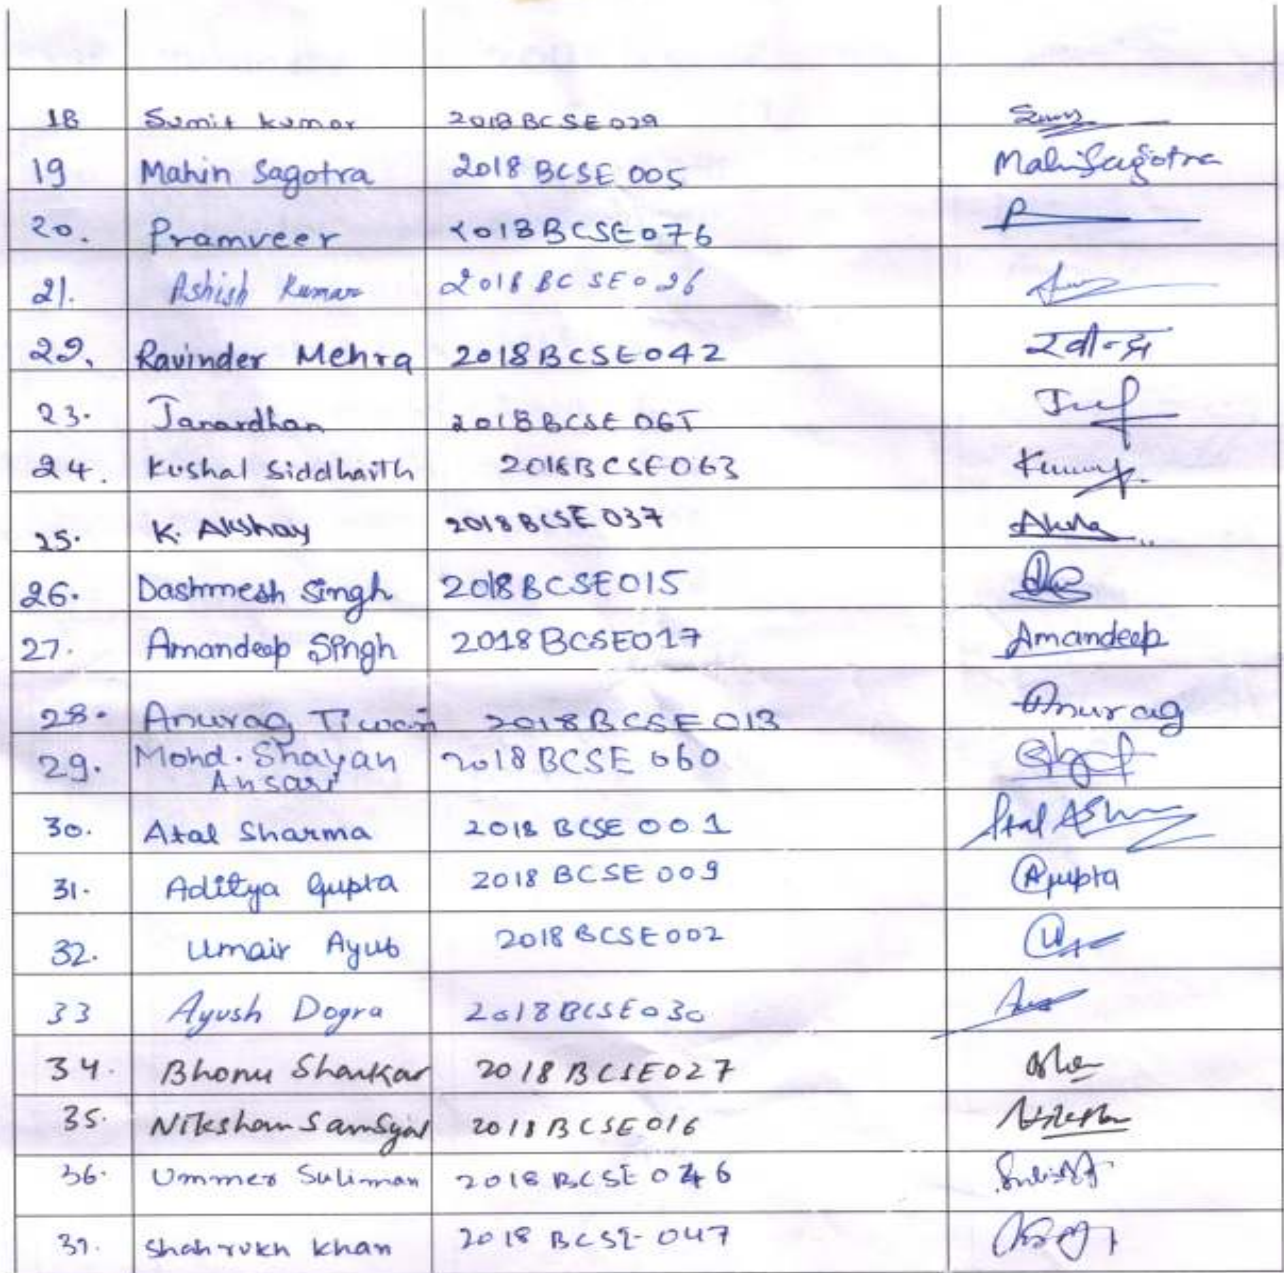 18 Sumit kumar 2018BCSE029
19 Mahin Sagotra 2018BCSE005 Mahin Sagotra
20. Pramveer 2018BCSE076 P
21. Ashish Kumar 2018BCSE026
22. Ravinder Mehra 2018BCSE042
23. Janardhan 2018BCSE065
24. Kushal Siddharth 2018BCSE063
25. K. Akshay 2018BCSE037
26. Dashmesh Singh 2018BCSE015
27. Amandeep Singh 2018BCSE017 Amandeep
28. Anurag Tiwari 2018BCSE013 Anurag
29. Mohd. Shayan 2018BCSE060
Ansari
30. Atal Sharma 2018BCSE001
31. Aditya Gupta 2018BCSE009 AGupta
32. Umair Ayub 2018BCSE002
33 Ayush Dogra 2018BCSE030
34. Bhonu Shankar 2018BCSE027
35. Niksham 2018BCSE016
36. Ummer Suliman 2018BCSE046
37. Shahrukh khan 2018BCSE-047